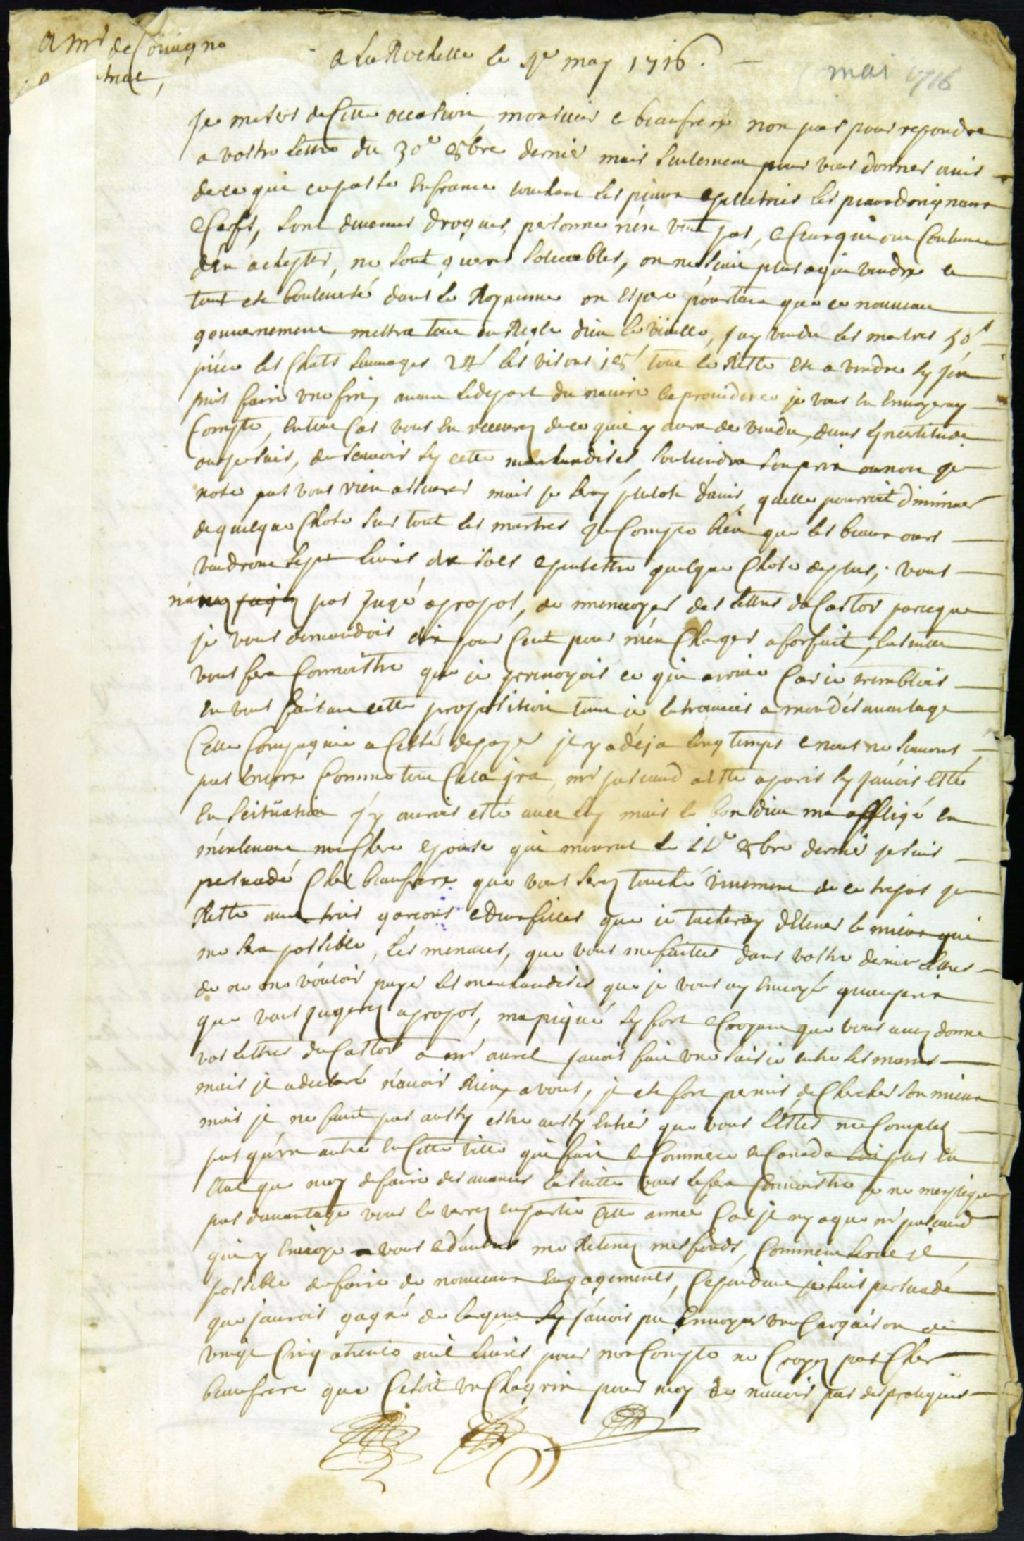 a mr de Couagne
a La Rochelle le 4e may 1716.
mai 1716
je me sers de Cette occasion, monsieur e beaufrere non pas pour repondre
a vostre Lettre du 30e 8bre dernier mais seulement pour vous donner avis
de ce qui ce passe en france touchant les peaux e pelletries les peaux dorignaux
e Cerfs, sont devenues drogues, personne n'en veut pas, e Ceux qui ont Coutume
d'en achepter, ne sont guere solvables, on ne scait plus a qui vendre e
tout est bouleversé dans le Royaume on espere pourtant que ce nouveau
gouvernement mettra tout en Regle dieu le veuille, j'ay vendu les martres 50s
piece les Chats sauvages 24s les visons 18s tout le Reste est a vendre sy j'en
puis faire une fin, avant le depart du navire la providence je vous en envoyeray
Compte, en tout Cas vous en recevrez de ce qui y aura de vendu, dans l'incertitude
ou je suis, de scavoir sy cette marchandises, soutiendra son prix ou non je
nose pas vous rien asseurer mais je seray plutost d'avis quelle pourroit diminuer
de quelque Chose sur tout les martres je Compte bien que les beaux ours
vaudront sept livres dix sols e peutestre quelque Chose de plus; vous
n'avez pas jugé apropos, de m'envoyer des lettres de Castor parceque
je vous demandois dix pour Cent pour m'en Charger a forfait, la suitte
vous fera Connoistre que je prevoyois ce qui arrive Car je tremblois
en vous faisant cette proposition tant je la trouvois a mon desavantage
Cette Compagnie a Cessé de payer il y a deja long temps e nous ne scavons
pas encore Comme tout Cela jra, mr pascaud a esté a paris sy j'avois esté
en scituation j'y aurois esté avec luy mais le bon dieu ma affligé en
m'enlevant ma Chere epouse qui mourut le 8bre dernier je suis
persuadé Cher beaufrere que vous serez touché vivement de ce trepas je
Reste avec trois garcons e deux filles que je tacheray d'Elever le mieux qui
me sera possible, Les menaces, que vous me faittes dans vostre derniere Lettre
de ne me vouloir payer les marchandises que je vous ay envoyé quau prix
que vous jugerez apropos, ma piqué sy fort e Croyant que vous aviez donné
vos lettres de Castor a mr aurel j'avois fait une saisie entre les mains
mais il a declaré n'avoir Rien, a vous, il est fort permis de Chercher son mieux
mais il ne faut pas aussy estre aussy entier que vous l'estes ne Comptez
pas qu'un autre en Cette ville qui fait le Commerce de Canada soit pas en
Etat que moy de faire des avances la suitte vous le fera Connoistre je ne mexplique
pas davantage vous le verrez en partie cette année Car il ny a que mr pascaud
qui y Envoye vous e d'autres me Retenez mes fonds, Comment seroit il
possible de faire de nouveaux Engagements, Cependant je suis persuadé
que jaurois gagné de largent sy j'avois pu Envoyer une Cargaison de
vingt Cinq a trente mil livres pour mon Compte ne Croyez pas Cher
beaufrere que C'estoit un Chagrin pour moy de navoir pas des pratiques